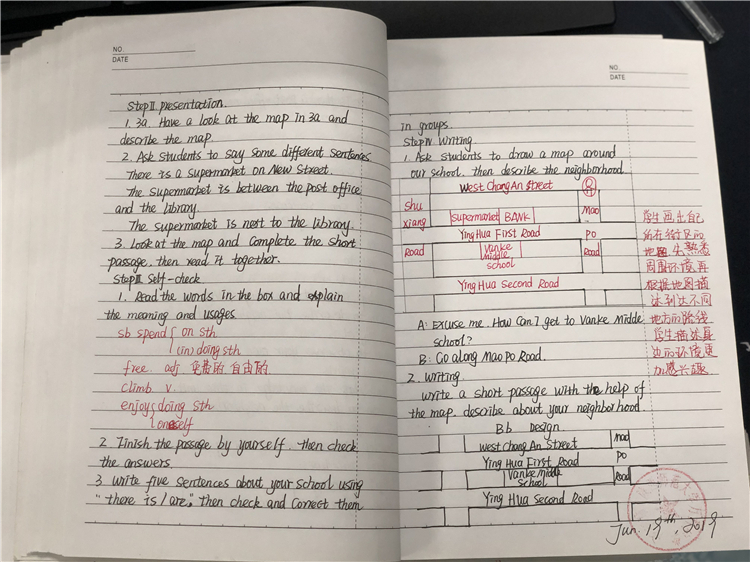 NO.
DATE
Step II. presentation.
1. 3a. Have a look at the map in 3a and
describe the map.
2. Ask students to say some different sentences
There is a supermarket on New Street.
The supermarket is between the post office
and the library.
The supermarket is next to the library.
3. Look at the map and complete the short
passage. then read it together.
Step III Self-check
1. Read the words in the box and explain
the meaning and usages
sb spend on sth
(in) doing sth
free. adj. 免费的 自由的
climb v.
enjoy doing sth
oneself
2 Finish the passage by yourself. then check
the answers.
3 write five sentences about your school using
"there is / are." then check and correct them
NO.
DATE
in groups.
Step IV Writing
1. Ask students to draw a map around
our school. then describe the neighborhood.
West Chang An Street
shu
xiang
Road
Supermarket BANK
Mao
Po
Road
Ying Hua First Road
Vanke
middle
school
Ying Hua Second Road
学生画出自己
所在街区的
地图 先熟悉
周围环境再
根据地图描
述到达不同
地方的路线
学生描述身
边的环境更
加感兴趣
A: Excuse me. How can I get to Vanke Middle
school?
B: Go along Mao Po Road.
2. Writing.
write a short passage with the help of
the map. describe about your neighborhood.
Bb Design.
West Chang An Street
Mao
Po
Road
Ying Hua First Road
Vanke Middle
school
Ying Hua Second Road
Jun. 19th, 2019